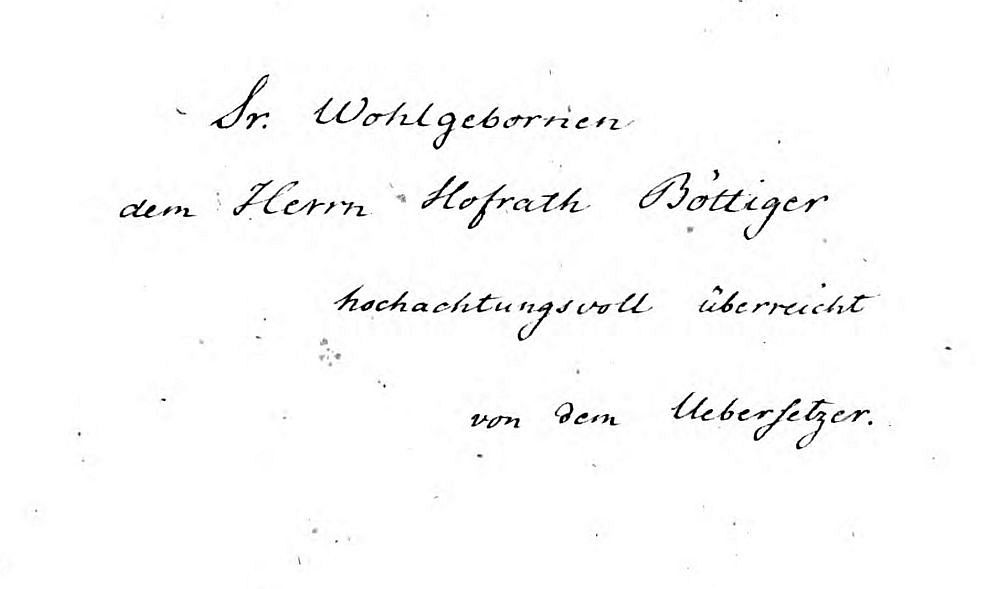 Sr. Wohlgebornen
dem Herrn Hofrath Böttiger
hochachtungsvoll überreicht
von dem Ueberſetzer.